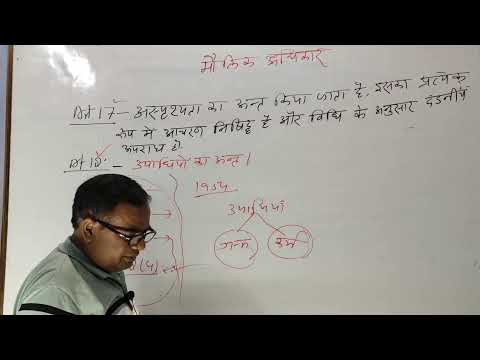 मौलिक अधिकार
Art 17 – अस्पृश्यता का अन्त किया जाता है, इसका प्रत्येक
रूप में आचरण निषिद्ध है और विधि के अनुसार दंडनीय
अपराध हो
Art 18 – उपाधियों का अन्त।
1954
उपाधियाँ